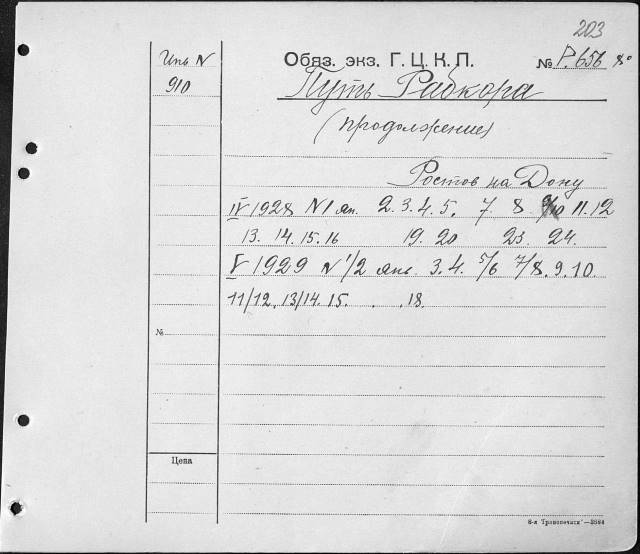 203
Инв N
910
Обяз. экз. Г.Ц.К.П. № Р.656 8°
Путь Рабкора
(продолжение)
Ростов на Дону
IV 1928 N1 ян. 2. 3. 4. 5. 7. 8 9/10 11. 12
13. 14. 15. 16 19. 20 23. 24.
V 1929 N 1/2 янв. 3. 4. 5/6 7/8. 9. 10.
11/12. 13/14. 15. . . 18.
№
Цена
—3584